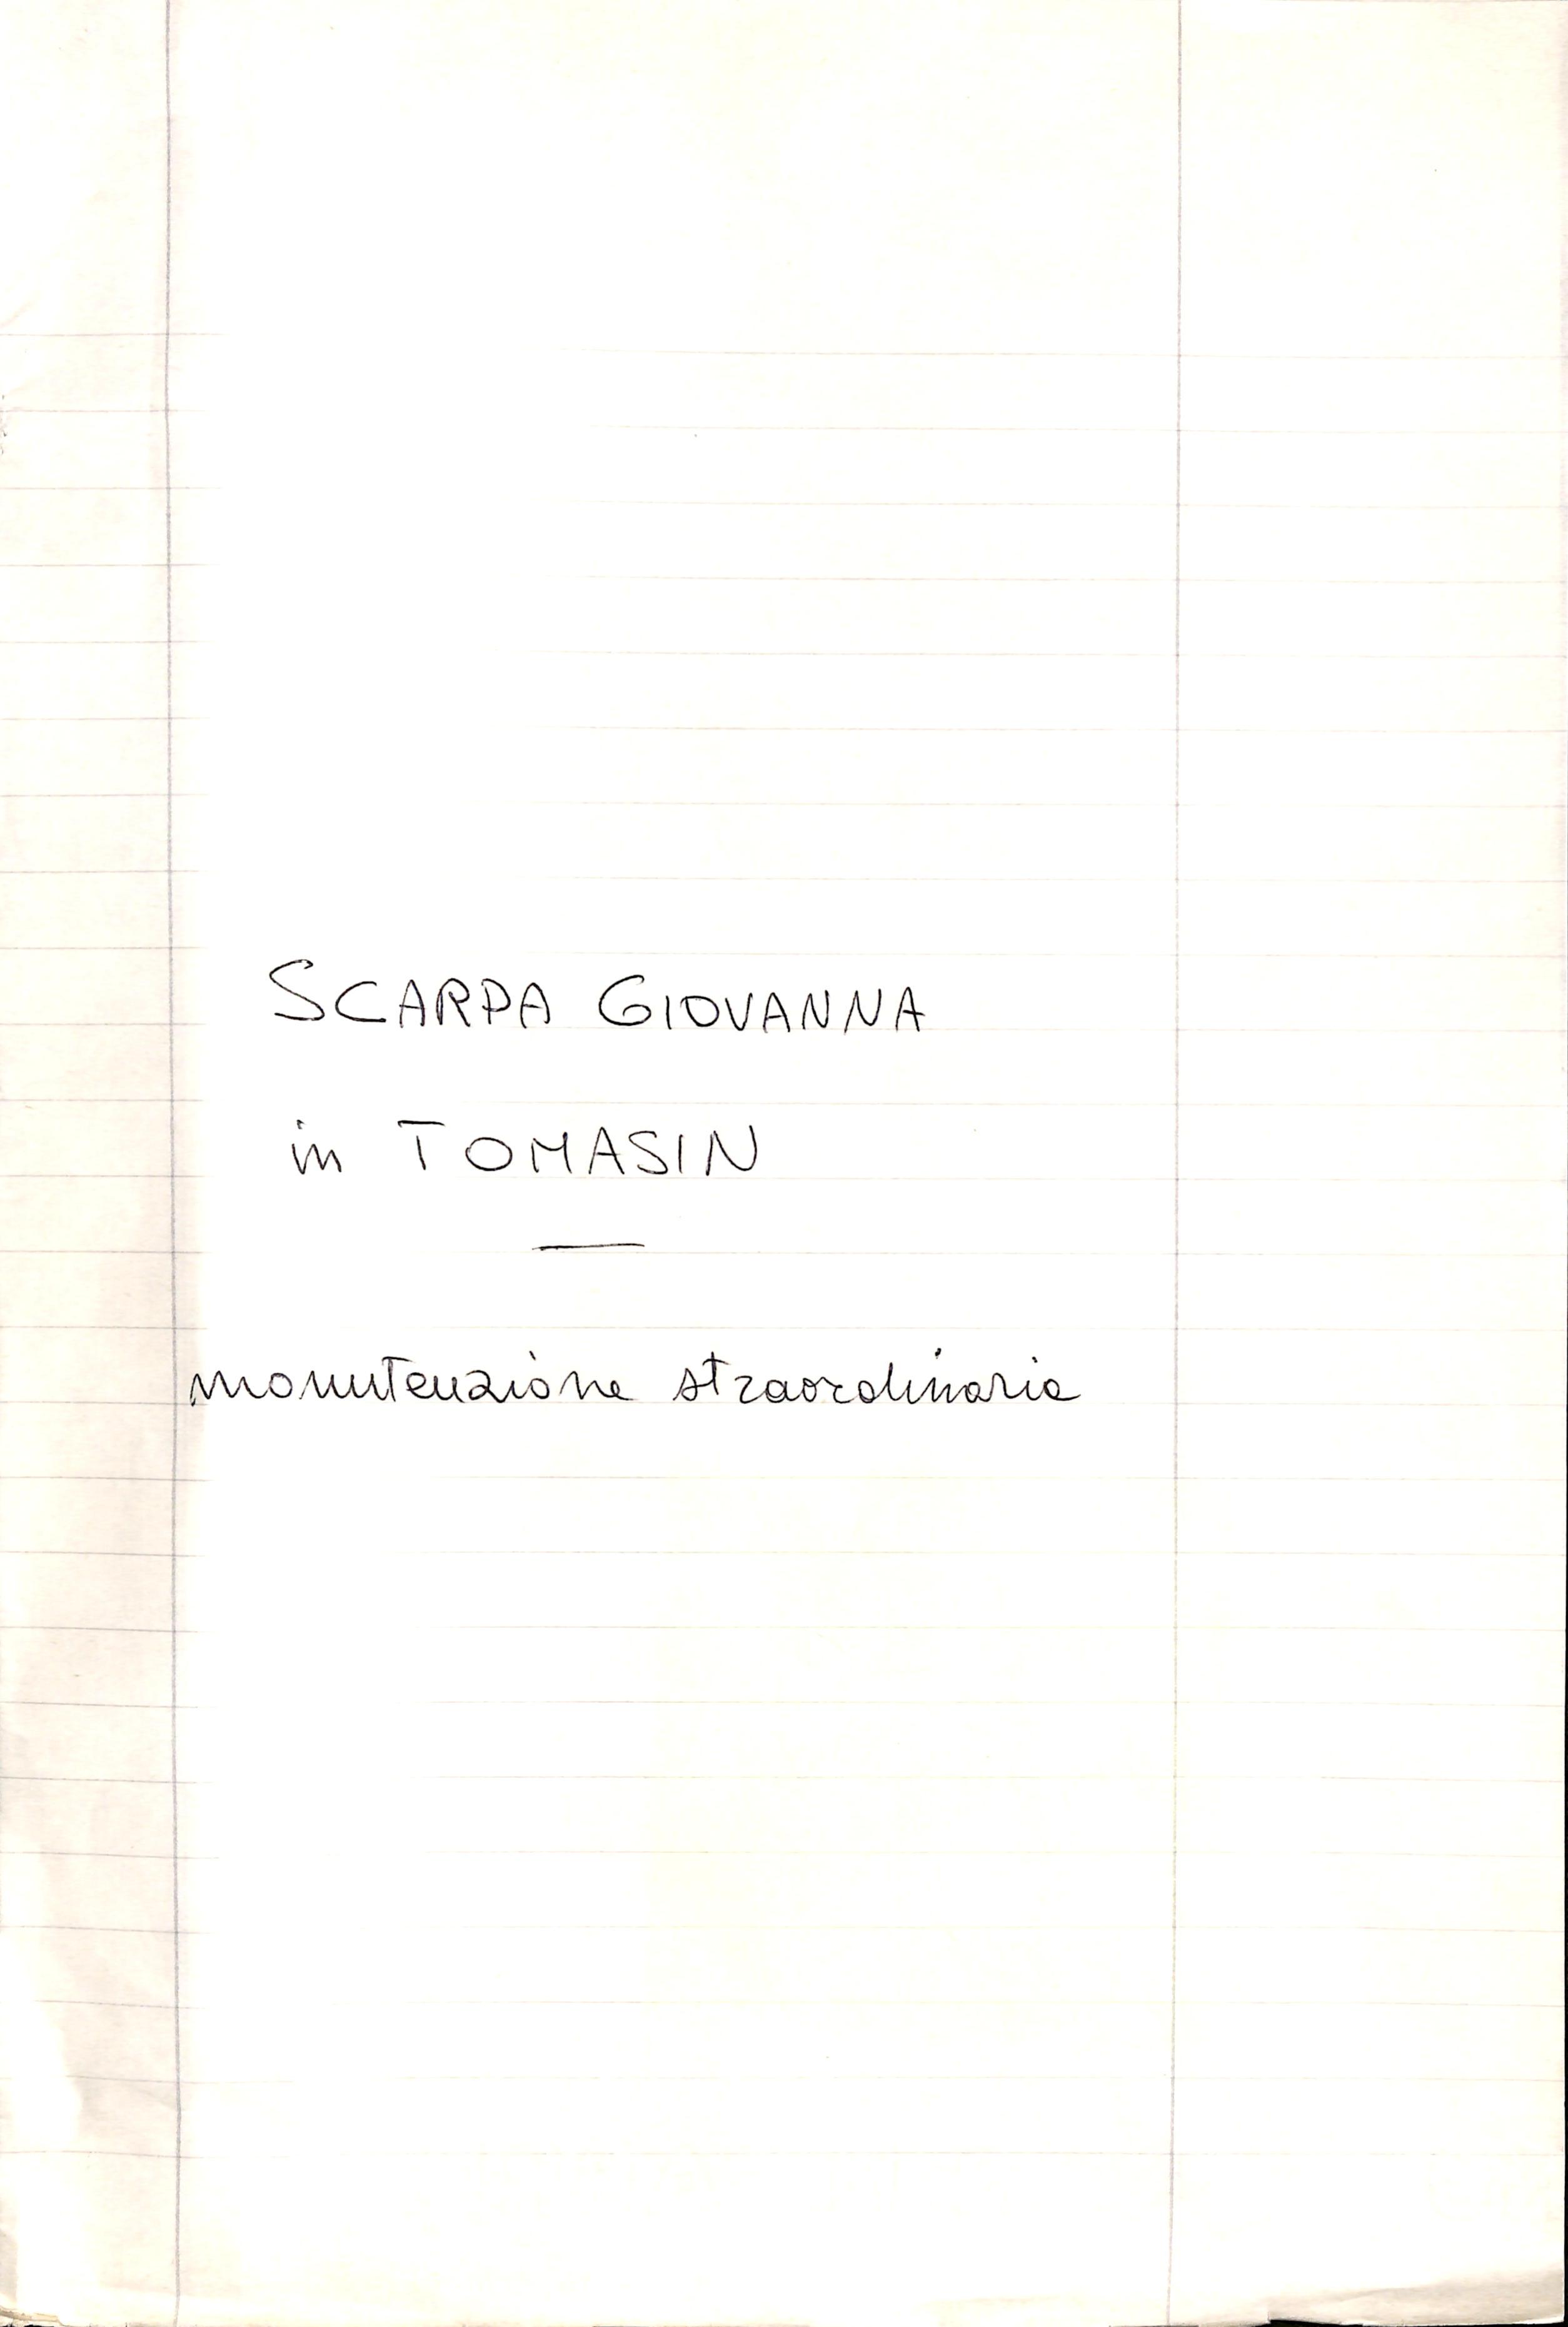 SCARPA GIOVANNA
in TOMASIN
manutenzione straordinaria